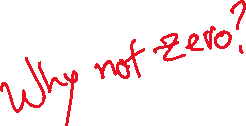 Why not zero?